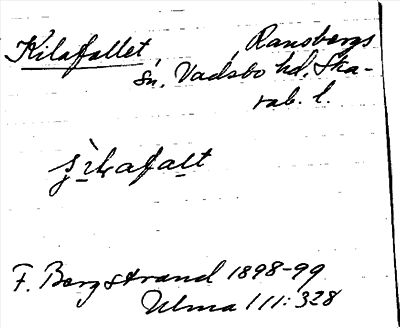 Kilafallet, Ransbergs
sn. Vadsbo hd, Ska-
rab. l.
F. Bergstrand 1898-99
Ulma 111:328